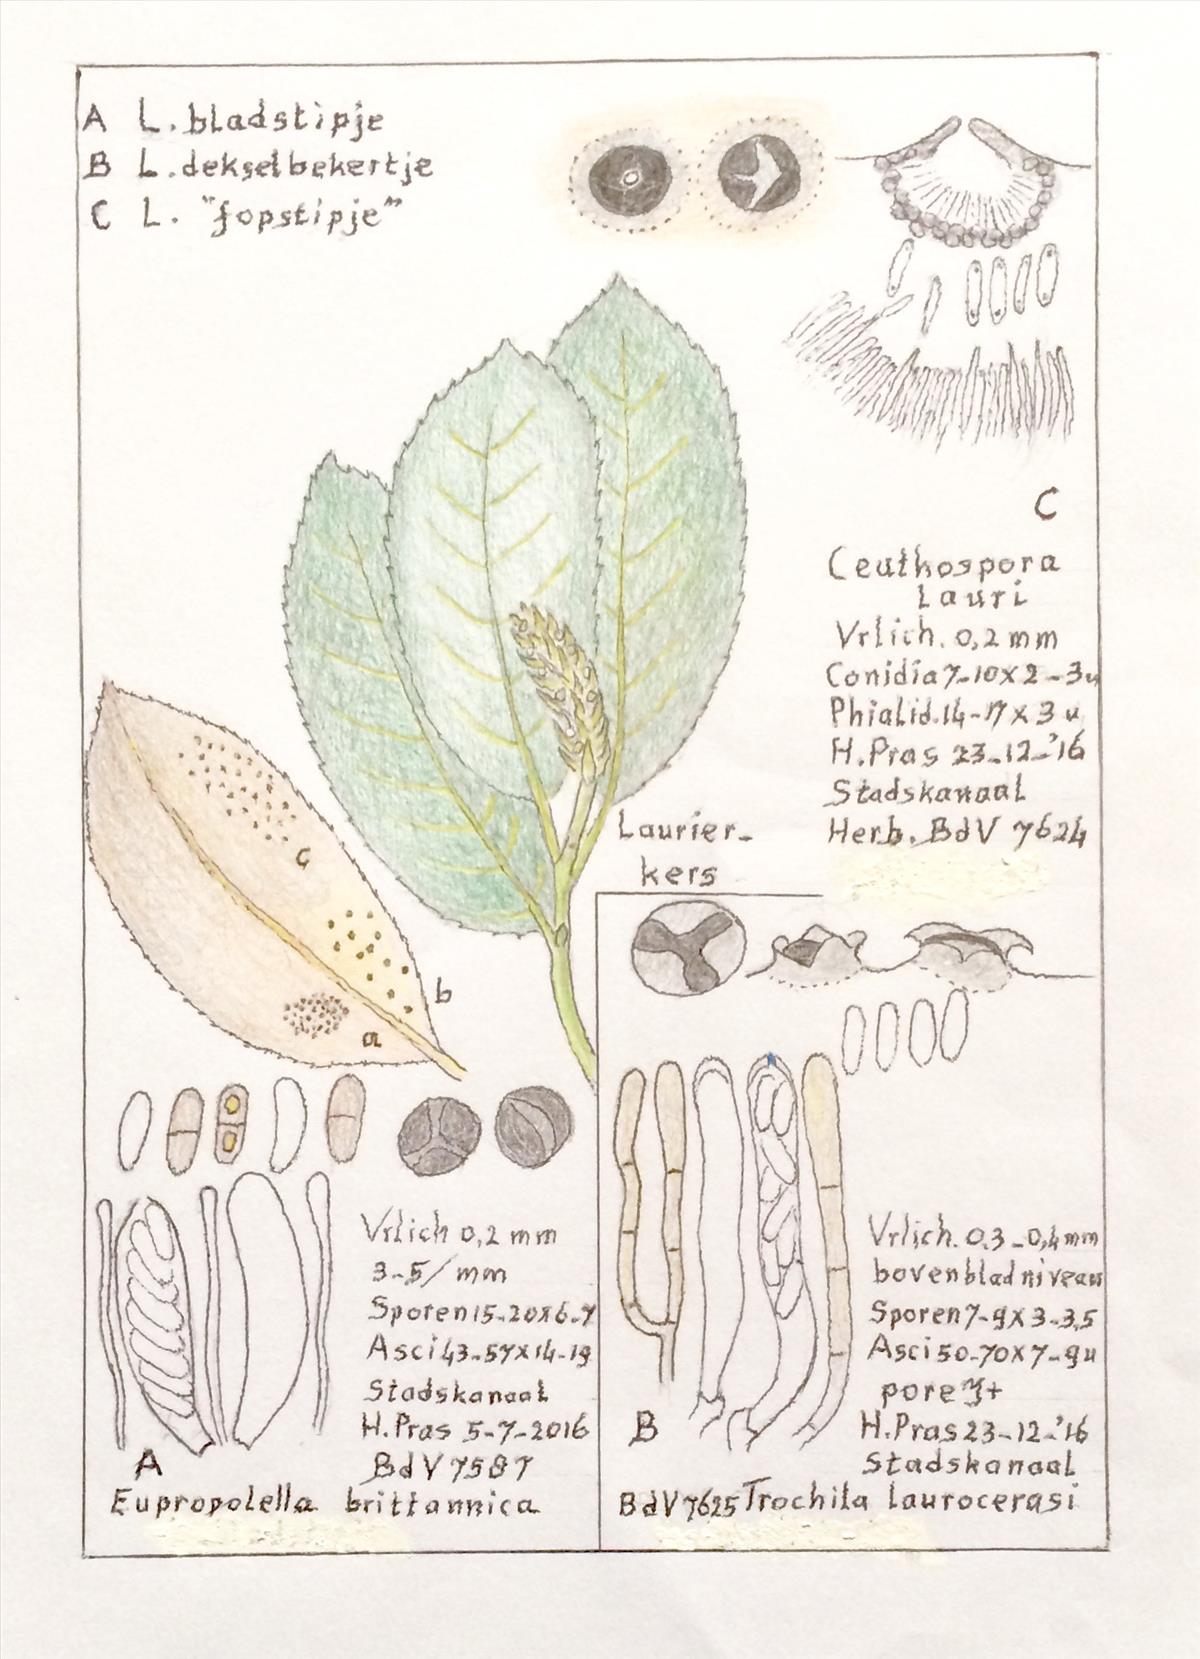 A L. bladstipje
B L. dekselbekertje
C L. "fopstipje"
C
Ceuthospora
Lauri
Vrlich. 0,2 mm
Conidia 7-10 x 2-3u
Phialid. 14-17 x 3 u
H. Pras 23-12-'16
Stadskanaal
Herb. BdV 7624
Laurier-
kers
c
b
a
Vrlich 0,2 mm
3-5/mm
Sporen 15-20x6-7
Asci 43-57x14-19
Stadskanaal
H. Pras 5-7-2016
BdV 7587
A
Eupropolella brittannica
Vrlich. 0,3-0,4 mm
bovenbladniveau
Sporen 7-9x3-3,5
Asci 50-70x7-9u
pore J+
H. Pras 23-12-'16
Stadskanaal
B
BdV 7625 Trochila laurocerasi